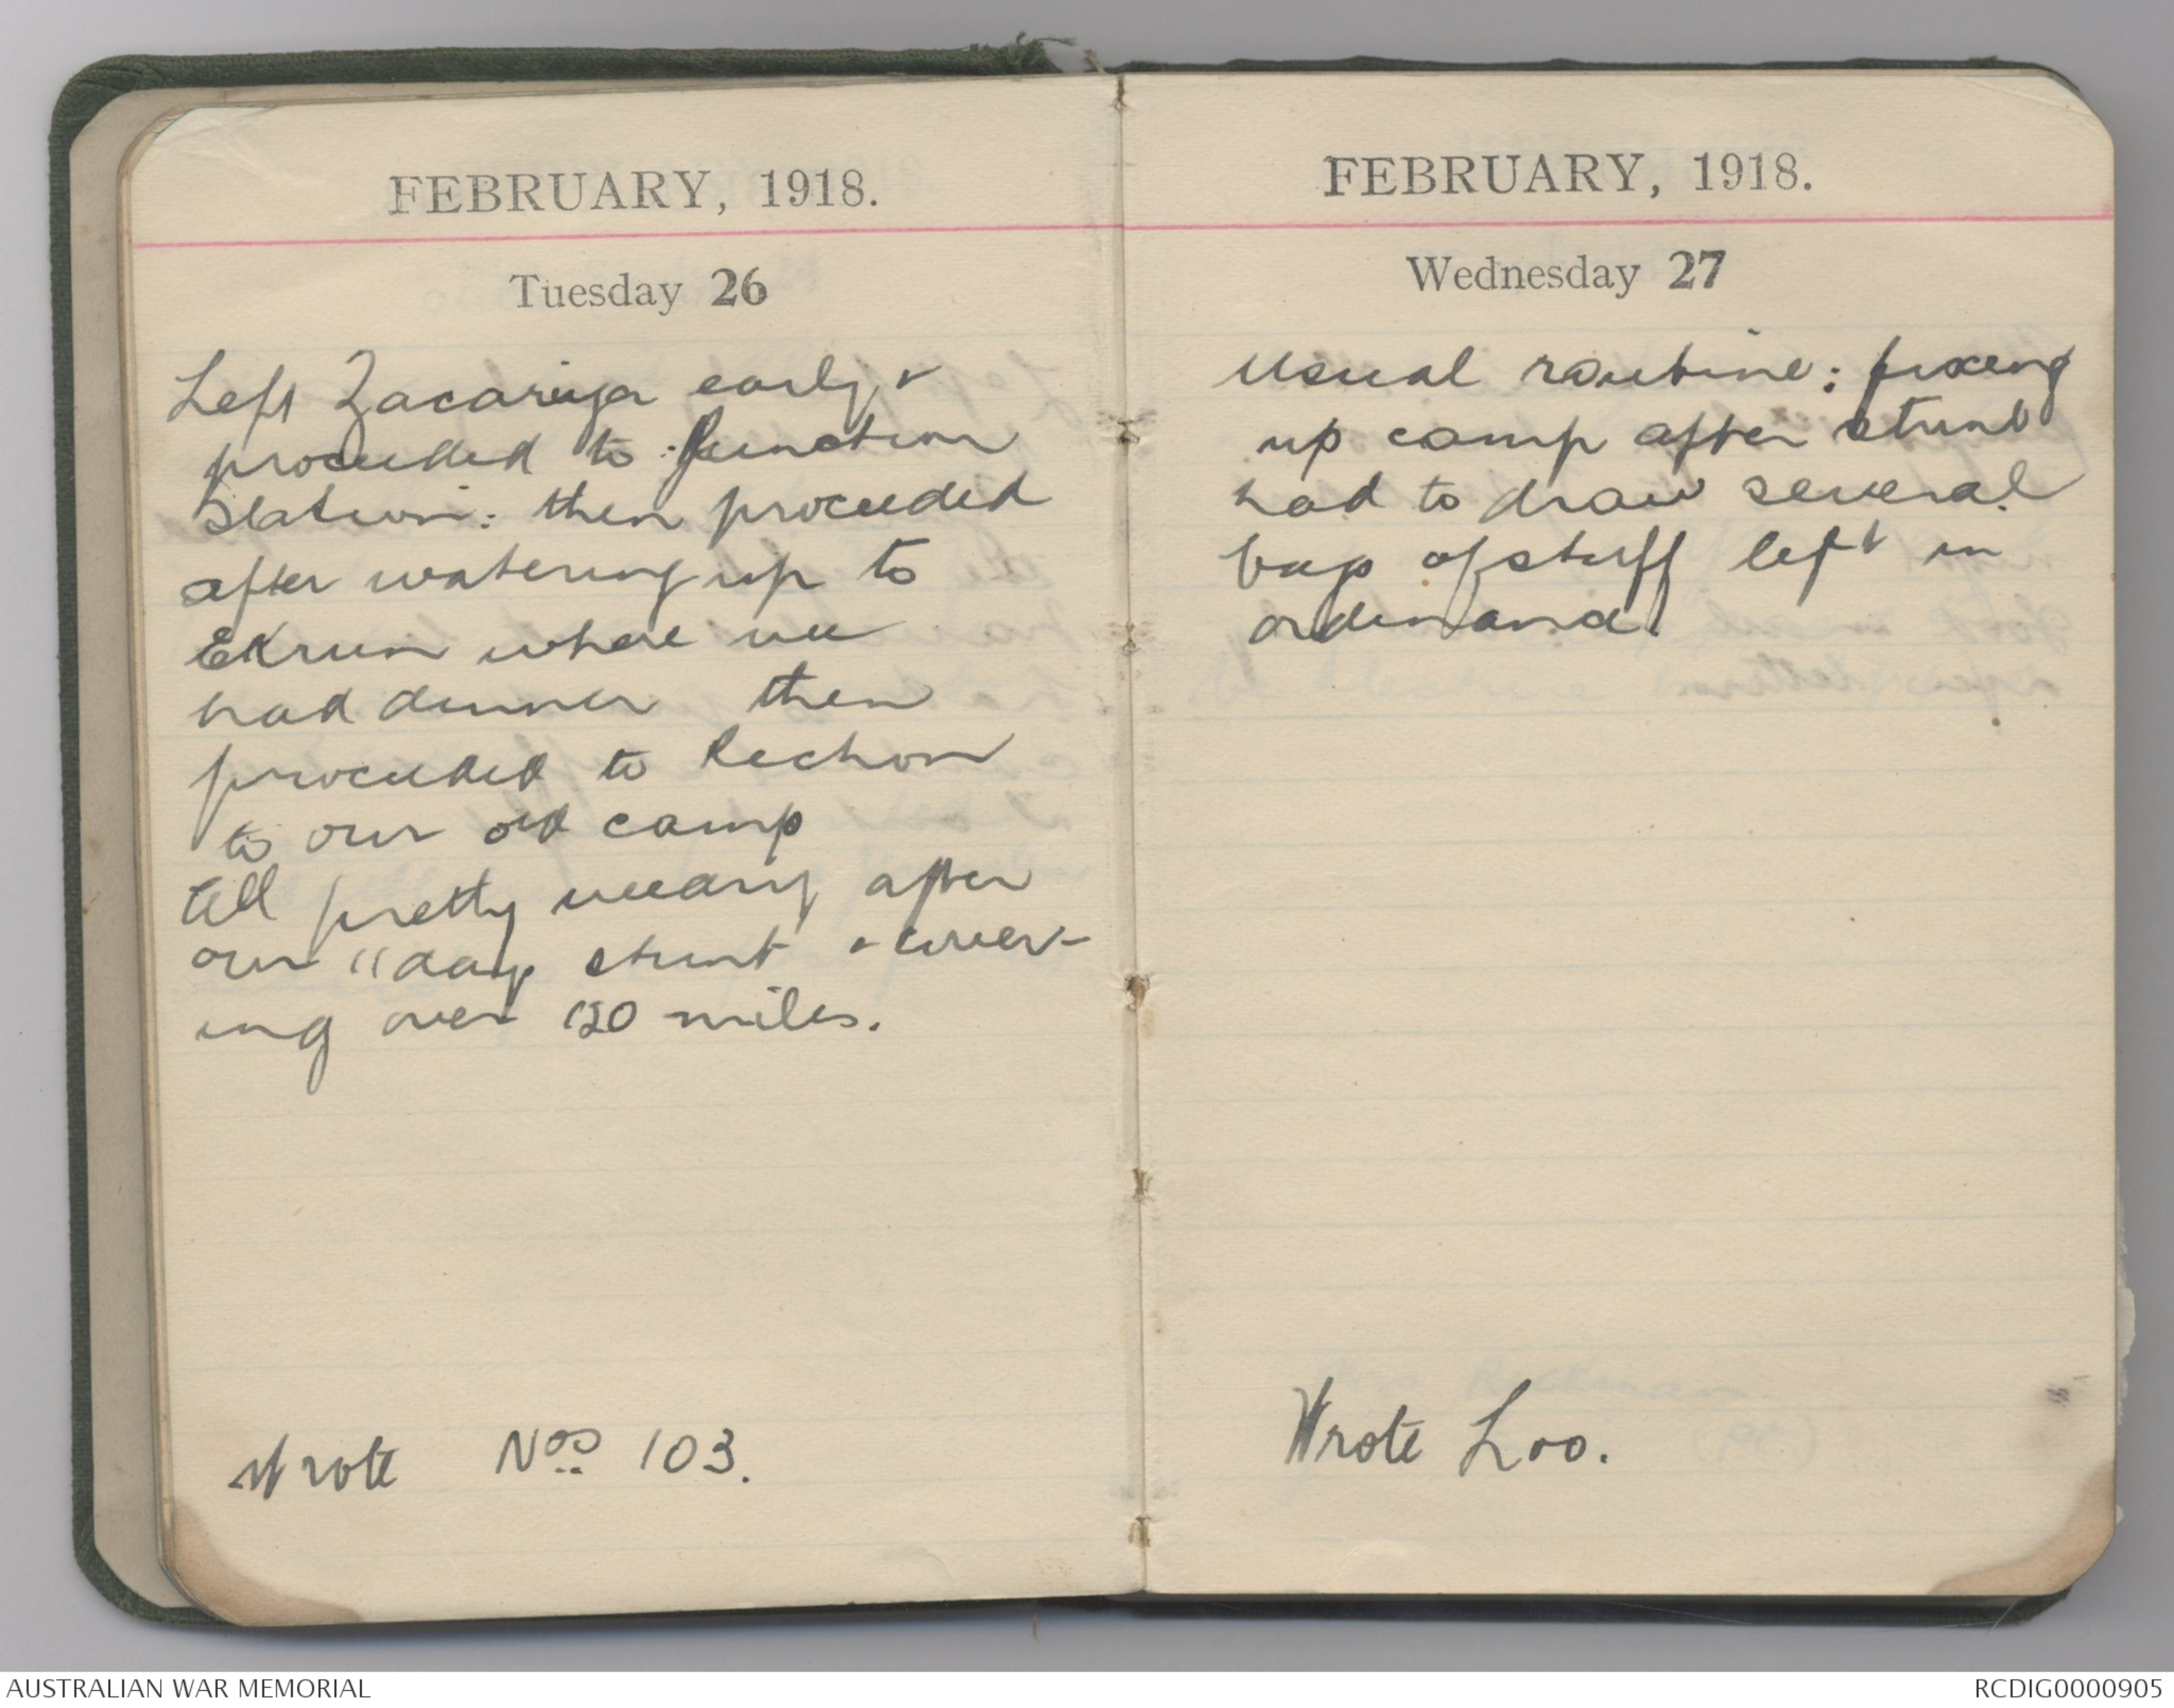 FEBRUARY, 1918.
Tuesday 26
Left Zacariya early &
proceeded to Junction
Station: then proceeded
after watering up to
Ekrun where we
had dinner then
proceeded to Rechon
to our old camp
All pretty weary after
our 11 days stunt & cover-
ing over 120 miles.
Wrote Nos 103.
FEBRUARY, 1918.
Wednesday 27
Usual routine: fixing
up camp after stunt
had to draw several
bags of stuff left in
ordinance.
Wrote Loo.
AUSTRALIAN WAR MEMORIAL
RCDIG0000905